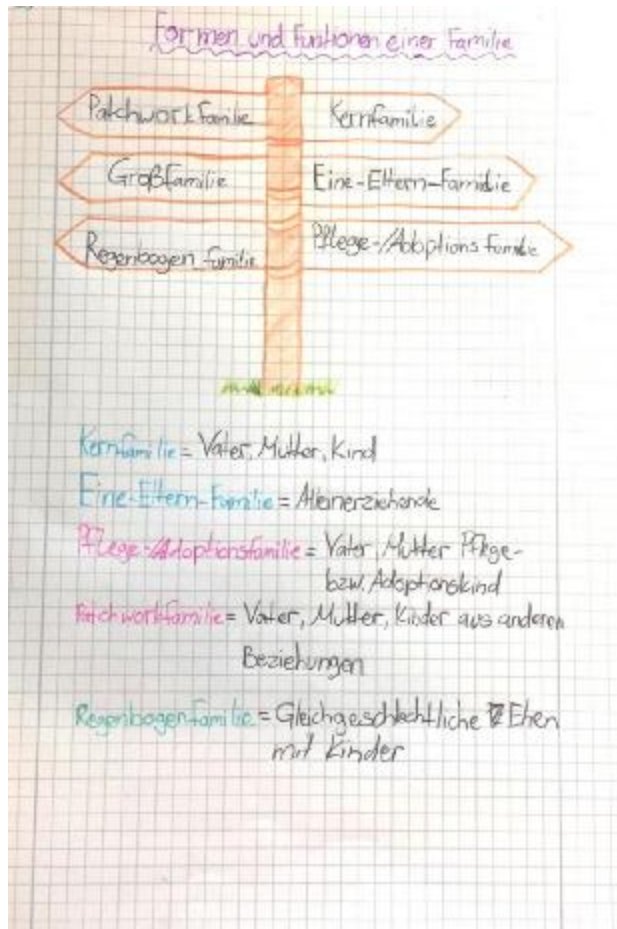 Formen und Funtionen einer Familie
Patchworkfamilie
Kernfamilie
Großfamilie
Eine-Eltern-Familie
Regenbogen familie
Pflege-/Adoptions familie
Kernfamilie = Vater, Mutter, Kind
Eine-Eltern-Familie = Alleinerziehende
Pflege-/Adoptionsfamilie = Vater, Mutter Pflege-
bzw. Adoptionskind
Patchworkfamilie = Vater, Mutter, Kinder aus anderen
Beziehungen
Regenbogenfamilie = Gleichgeschlechtliche Ehen
mit Kinder